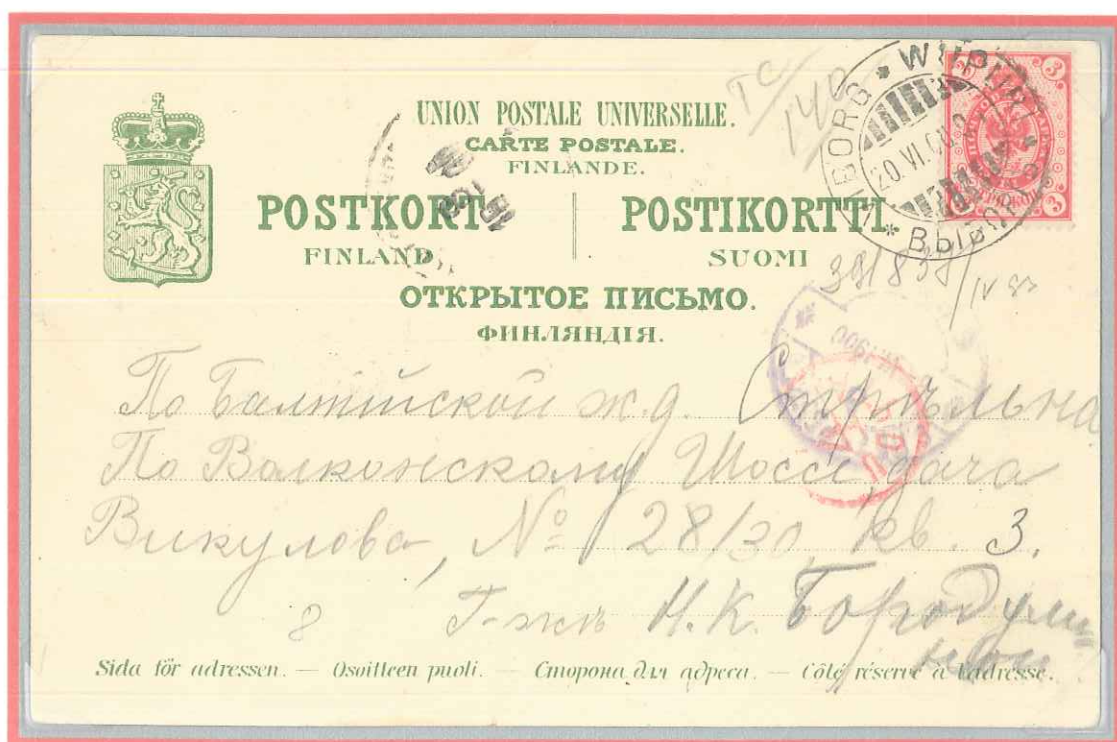 UNION POSTALE UNIVERSELLE.
CARTE POSTALE.
FINLANDE.
POSTKORT. POSTIKORTTI.
FINLAND. SUOMI
ОТКРЫТОЕ ПИСЬМО.
ФИНЛЯНДІЯ.
WIBORG * WIIPURI * ВЫБОРГЪ *
20. VI. 00
3 3 3 3
По Балтійской ж.д. Стрѣльна
По Волконскому Шоссе, дача
Викулова, № 28/30, кв. 3.
8 Г-жѣ Н.К. Бородулиной
Sida för adressen. — Osoitteen puoli. — Сторона для адреса. — Côté réservé à l'adresse.